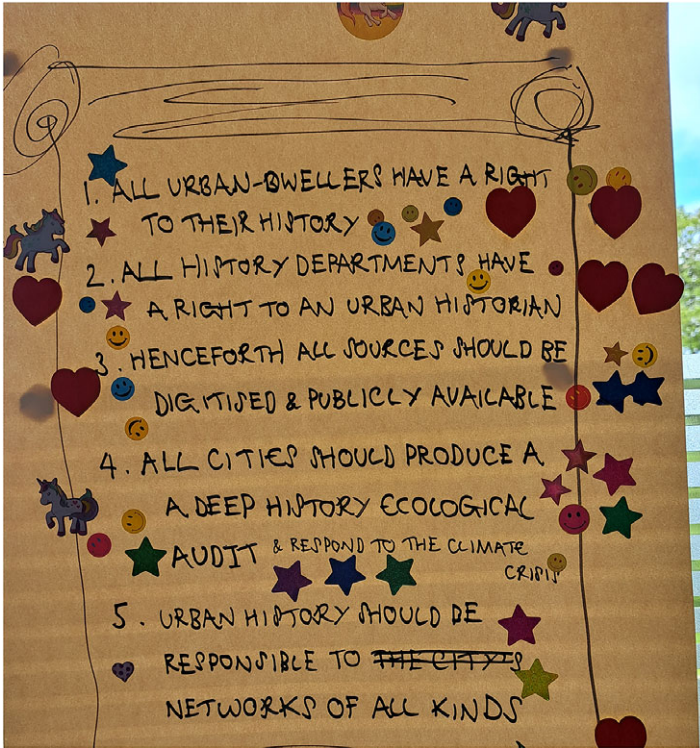 1. ALL URBAN-DWELLERS HAVE A RIGHT
TO THEIR HISTORY
2. ALL HISTORY DEPARTMENTS HAVE
A RIGHT TO AN URBAN HISTORIAN
3. HENCEFORTH ALL SOURCES SHOULD BE
DIGITISED & PUBLICLY AVAILABLE
4. ALL CITIES SHOULD PRODUCE A
A DEEP HISTORY ECOLOGICAL
AUDIT & RESPOND TO THE CLIMATE
CRISIS
5. URBAN HISTORY SHOULD BE
RESPONSIBLE TO THE CITY'S
NETWORKS OF ALL KINDS